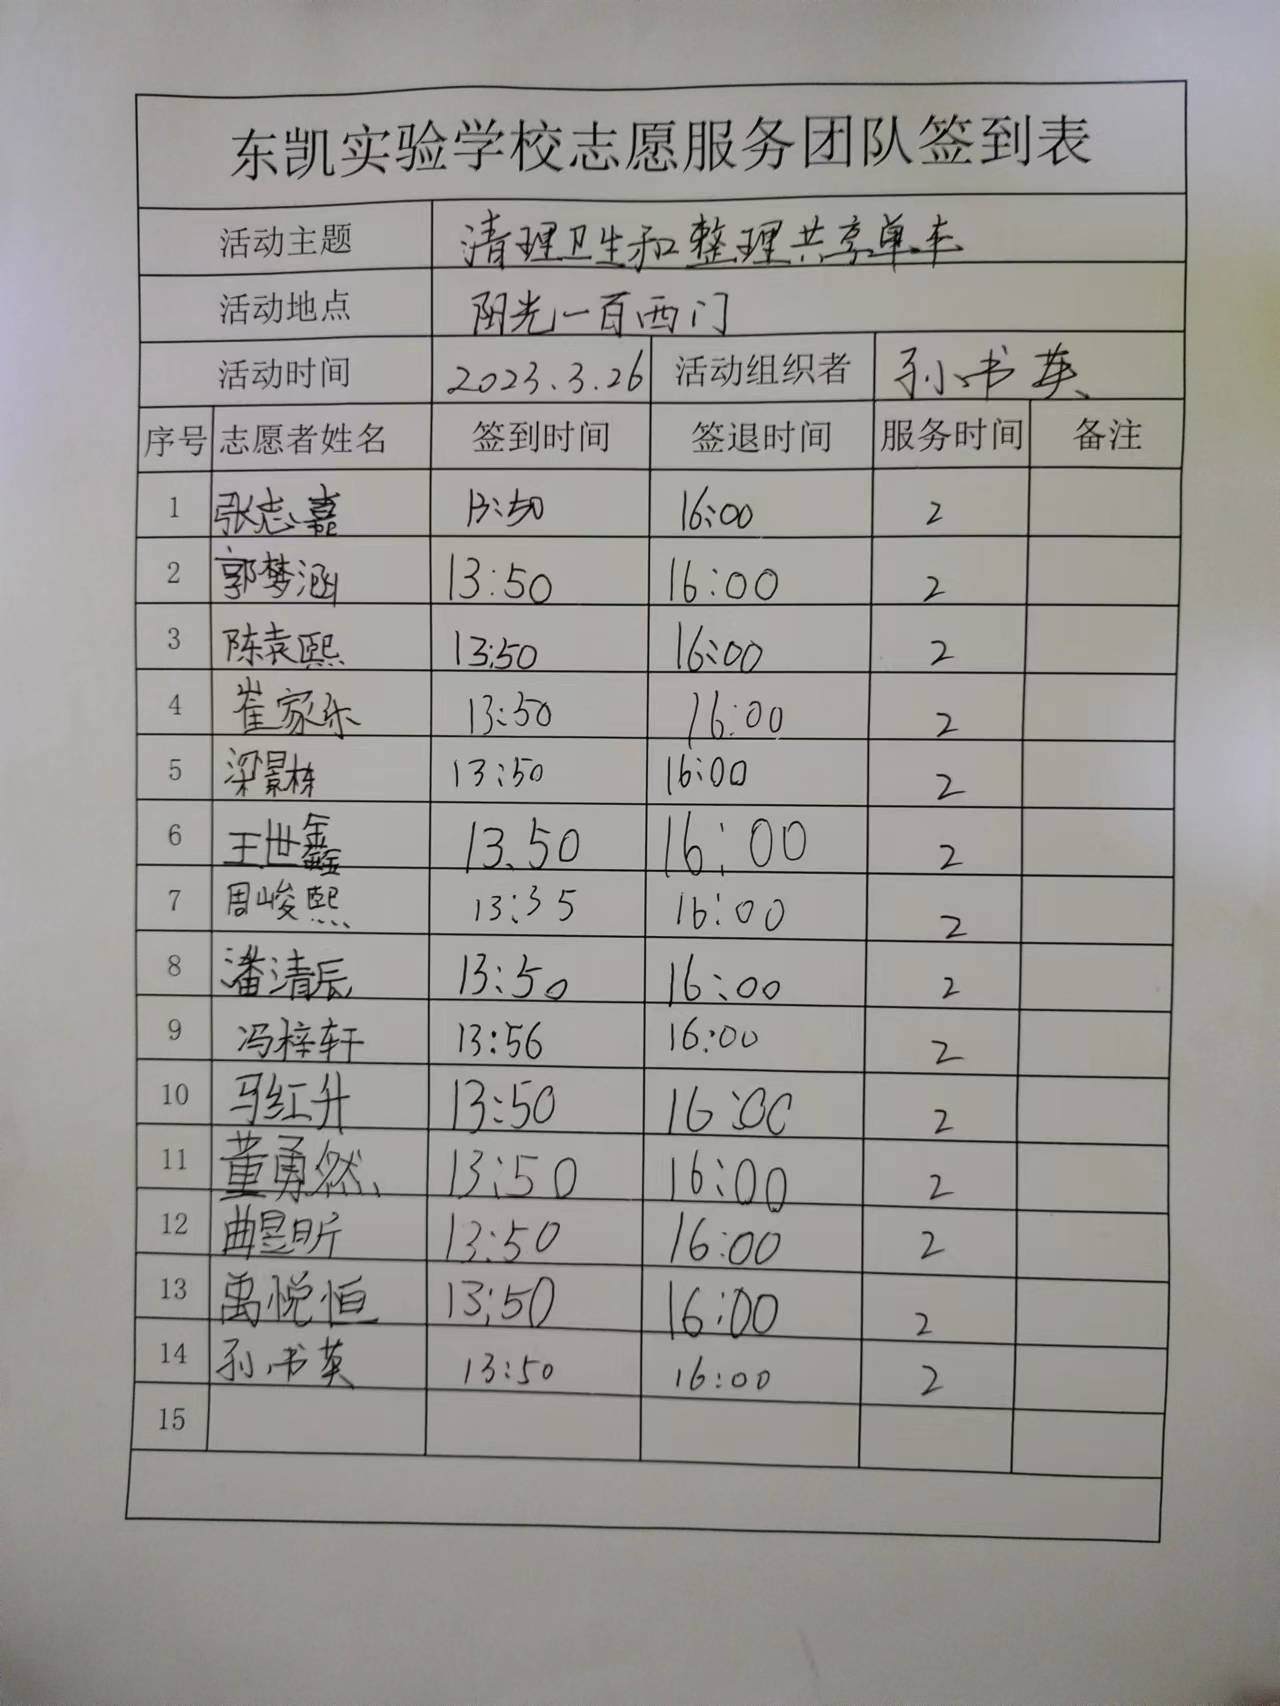 东凯实验学校志愿服务团队签到表
活动主题 清理卫生和整理共享单车
活动地点 阳光一百西门
活动时间 2023.3.26 活动组织者 孙书英
序号 志愿者姓名 签到时间 签退时间 服务时间 备注
1 张志嘉 13:50 16:00 2
2 郭梦涵 13:50 16:00 2
3 陈袁熙 13:50 16:00 2
4 崔家乐 13:50 16:00 2
5 梁景栋 13:50 16:00 2
6 王世鑫 13.50 16:00 2
7 周峻熙 13:35 16:00 2
8 潘清辰 13:50 16:00 2
9 冯梓轩 13:56 16:00 2
10 马红升 13:50 16:00 2
11 董勇然 13:50 16:00 2
12 曲昱昕 13:50 16:00 2
13 禹悦恒 13:50 16:00 2
14 孙书英 13:50 16:00 2
15